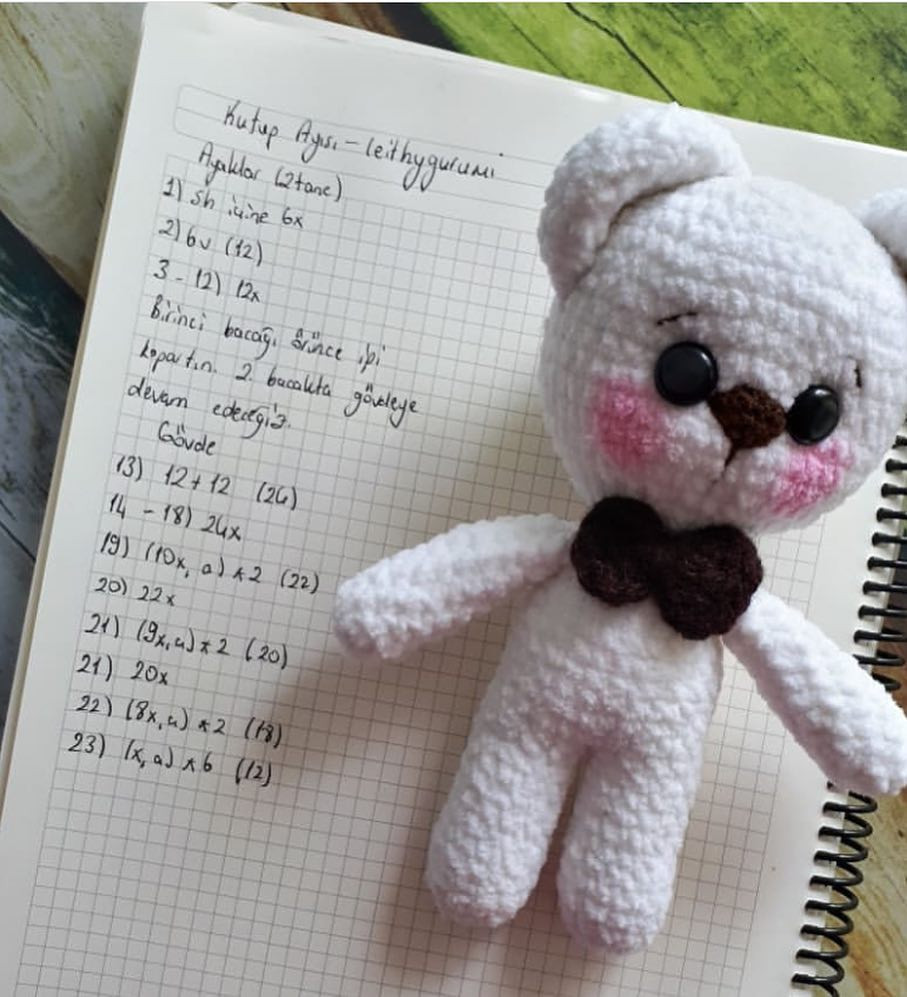 Kutup Ayısı - leithygurumi
Ayaklar (2 tane)
1) sh içine 6x
2) 6v (12)
3 - 12) 12x
Birinci bacağı örünce ipi
kopartın. 2. bacakta gövdeye
devam edeceğiz.
Gövde
13) 12+12 (24)
14 - 18) 24x
19) (10x, a) x 2 (22)
20) 22x
21) (9x, a) x 2 (20)
21) 20x
22) (8x, a) x 2 (18)
23) (x, a) x 6 (12)